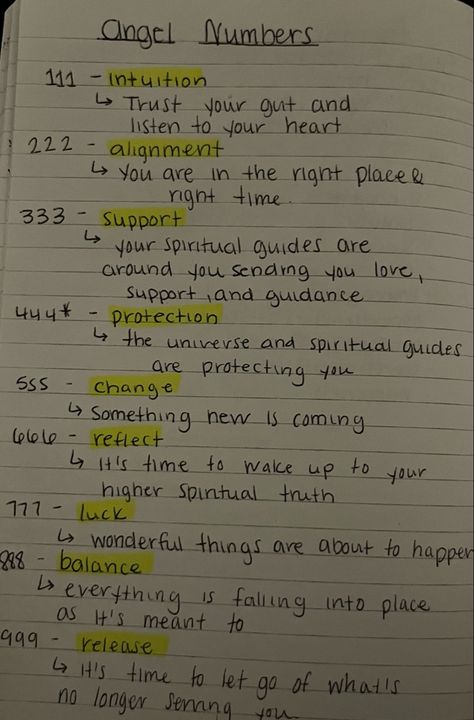 angel Numbers
111 - intuition
↳ Trust your gut and
listen to your heart
222 - alignment
↳ you are in the right place &
right time.
333 - support
↳ your spiritual guides are
around you sending you love,
support, and guidance
444* - protection
↳ the universe and spiritual guides
are protecting you
555 - change
↳ something new is coming
666 - reflect
↳ it's time to wake up to your
higher spiritual truth
777 - luck
↳ wonderful things are about to happen
888 - balance
↳ everything is falling into place
as it's meant to
999 - release
↳ it's time to let go of what's
no longer serving you